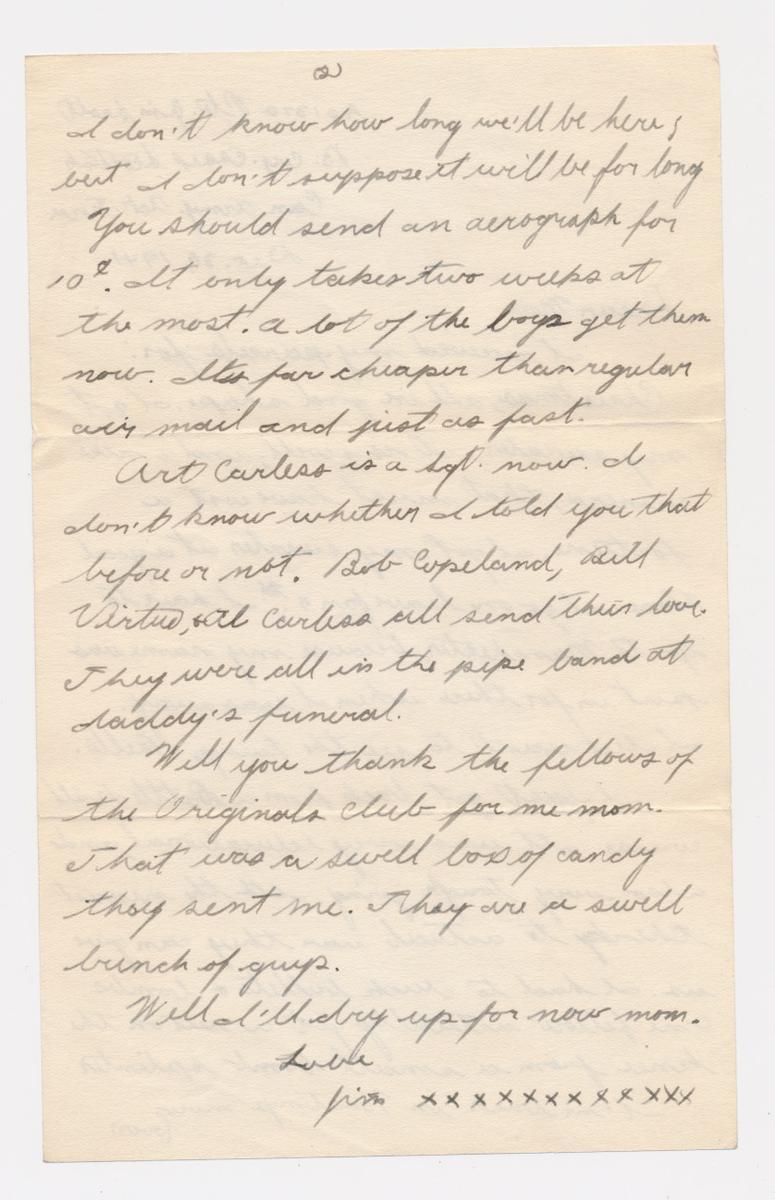 2
I don't know how long we'll be here;
but I don't suppose it will be for long
You should send an aerograph for
10¢. It only takes two weeks at
the most. A lot of the boys get them
now. Its far cheaper than regular
air mail and just as fast.
Art Carless is a Sgt. now. I
don't know whether I told you that
before or not. Bob Copeland, Bill
Virtue, & Al Carless all send their love.
They were all in the pipe band at
daddy's funeral.
Will you thank the fellows of
the Originals Club for me mom.
That was a swell box of candy
they sent me. They are a swell
bunch of guys.
Well I'll dry up for now mom.
Love
Jim xxxxxxxxxxxxx